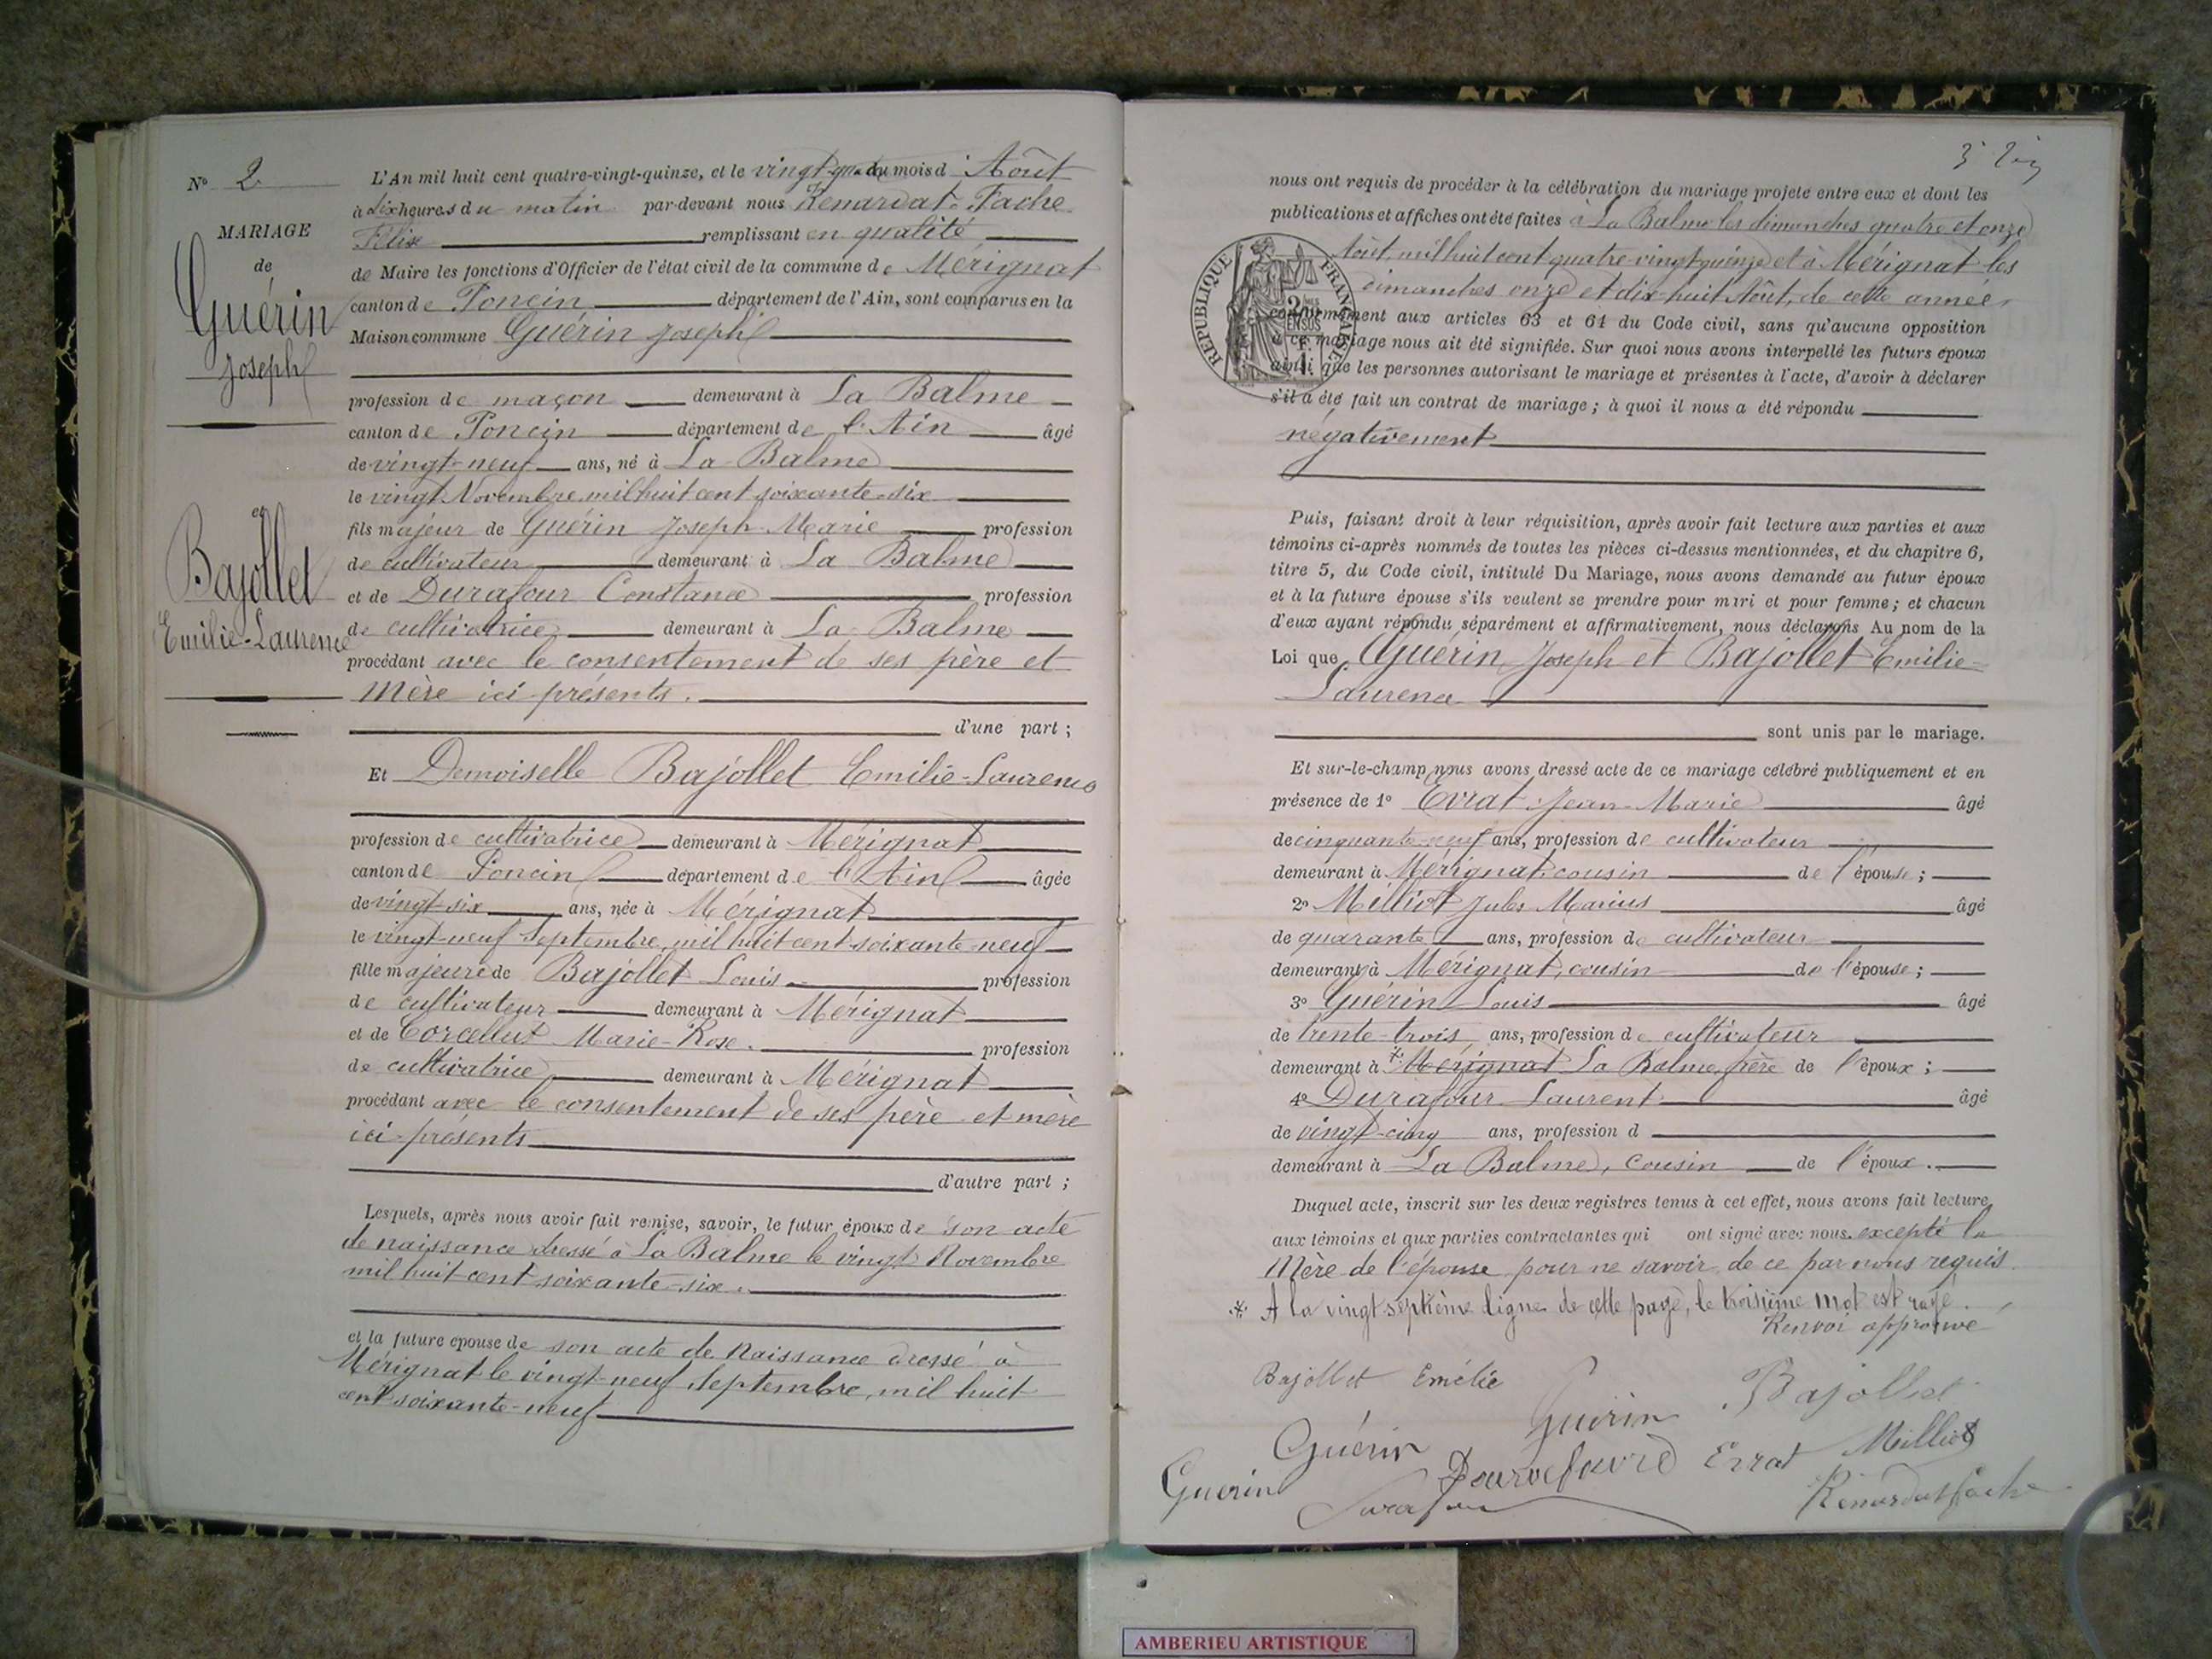 N° 2
MARIAGE
de
Guérin
Joseph
et
Bajollet
Emilie-Laurence
L'An mil huit cent quatre-vingt-quinze, et le du mois d'Août
à dix heures du matin par-devant nous Renardat-Fache
Félix remplissant en qualité
de Maire les fonctions d'Officier de l'état civil de la commune de Mérignat
canton de Poncin département de l'Ain, sont comparus en la
Maison commune Guérin Joseph
profession de maçon demeurant à La Balme
canton de Poncin département de l'Ain âgé
de vingt-neuf ans, né à La Balme
le vingt Novembre mil huit cent soixante-six
fils majeur de Guérin Joseph-Marie profession
de cultivateur demeurant à La Balme
et de Durafour Constance profession
de cultivatrice demeurant à La Balme
procédant avec le consentement de ses père et
mère ici présents.
d'une part ;
Et Demoiselle Bajollet Emilie-Laurence
profession de cultivatrice demeurant à Mérignat
canton de Poncin département de l'Ain âgée
de vingt-six ans, née à Mérignat
le vingt-neuf Septembre, mil huit cent soixante-neuf
fille majeure de Bajollet Louis profession
de cultivateur demeurant à Mérignat
et de Marie-Rose. profession
de cultivatrice demeurant à Mérignat
procédant avec le consentement de ses père et mère
ici présents
d'autre part ;
Lesquels, après nous avoir fait remise, savoir, le futur époux de son acte
de naissance dressé à La Balme le vingt Novembre
mil huit cent soixante-six.
et la future épouse de son acte de Naissance dressé à
Mérignat le vingt-neuf Septembre, mil huit
cent soixante-neuf
nous ont requis de procéder à la célébration du mariage projeté entre eux et dont les
publications et affiches ont été faites à La Balme les dimanches quatre et onze
Août, mil huit cent quatre-vingt-quinze et à Mérignat les
dimanches onze et dix-huit Août, de cette année,
conformément aux articles 63 et 64 du Code civil, sans qu'aucune opposition
à ce mariage nous ait été signifiée. Sur quoi nous avons interpellé les futurs époux
ainsi que les personnes autorisant le mariage et présentes à l'acte, d'avoir à déclarer
s'il a été fait un contrat de mariage ; à quoi il nous a été répondu
négativement
REPUBLIQUE FRANÇAISE
Puis, faisant droit à leur réquisition, après avoir fait lecture aux parties et aux
témoins ci-après nommés de toutes les pièces ci-dessus mentionnées, et du chapitre 6,
titre 5, du Code civil, intitulé Du Mariage, nous avons demandé au futur époux
et à la future épouse s'ils veulent se prendre pour mari et pour femme ; et chacun
d'eux ayant répondu séparément et affirmativement, nous déclarons Au nom de la
Loi que Guérin Joseph et Bajollet Emilie-
Laurence
sont unis par le mariage.
Et sur-le-champ nous avons dressé acte de ce mariage célébré publiquement et en
présence de 1° Evrat Jean-Marie âgé
de cinquante-neuf ans, profession de cultivateur
demeurant à Mérignat, cousin de l'épouse ;
2° Milliot Jules Marius âgé
de quarante ans, profession de cultivateur
demeurant à Mérignat, cousin de l'épouse ;
3° Guérin Louis âgé
de trente-trois ans, profession de cultivateur
demeurant à * Mérignat La Balme, frère de l'époux ;
4° Durafour Laurent âgé
de vingt-cinq ans, profession d
demeurant à La Balme, cousin de l'époux.
Duquel acte, inscrit sur les deux registres tenus à cet effet, nous avons fait lecture
aux témoins et aux parties contractantes qui ont signé avec nous excepté la
Mère de l'épouse pour ne savoir de ce par nous requis.
* A la vingt septième ligne de cette page, le troisième mot est rayé.
Renvoi approuvé
Bajollet Emélie
Guérin Bajollet
Guérin Evrat Milliot
Guerin
Durafour
Renardat fache
AMBERIEU ARTISTIQUE